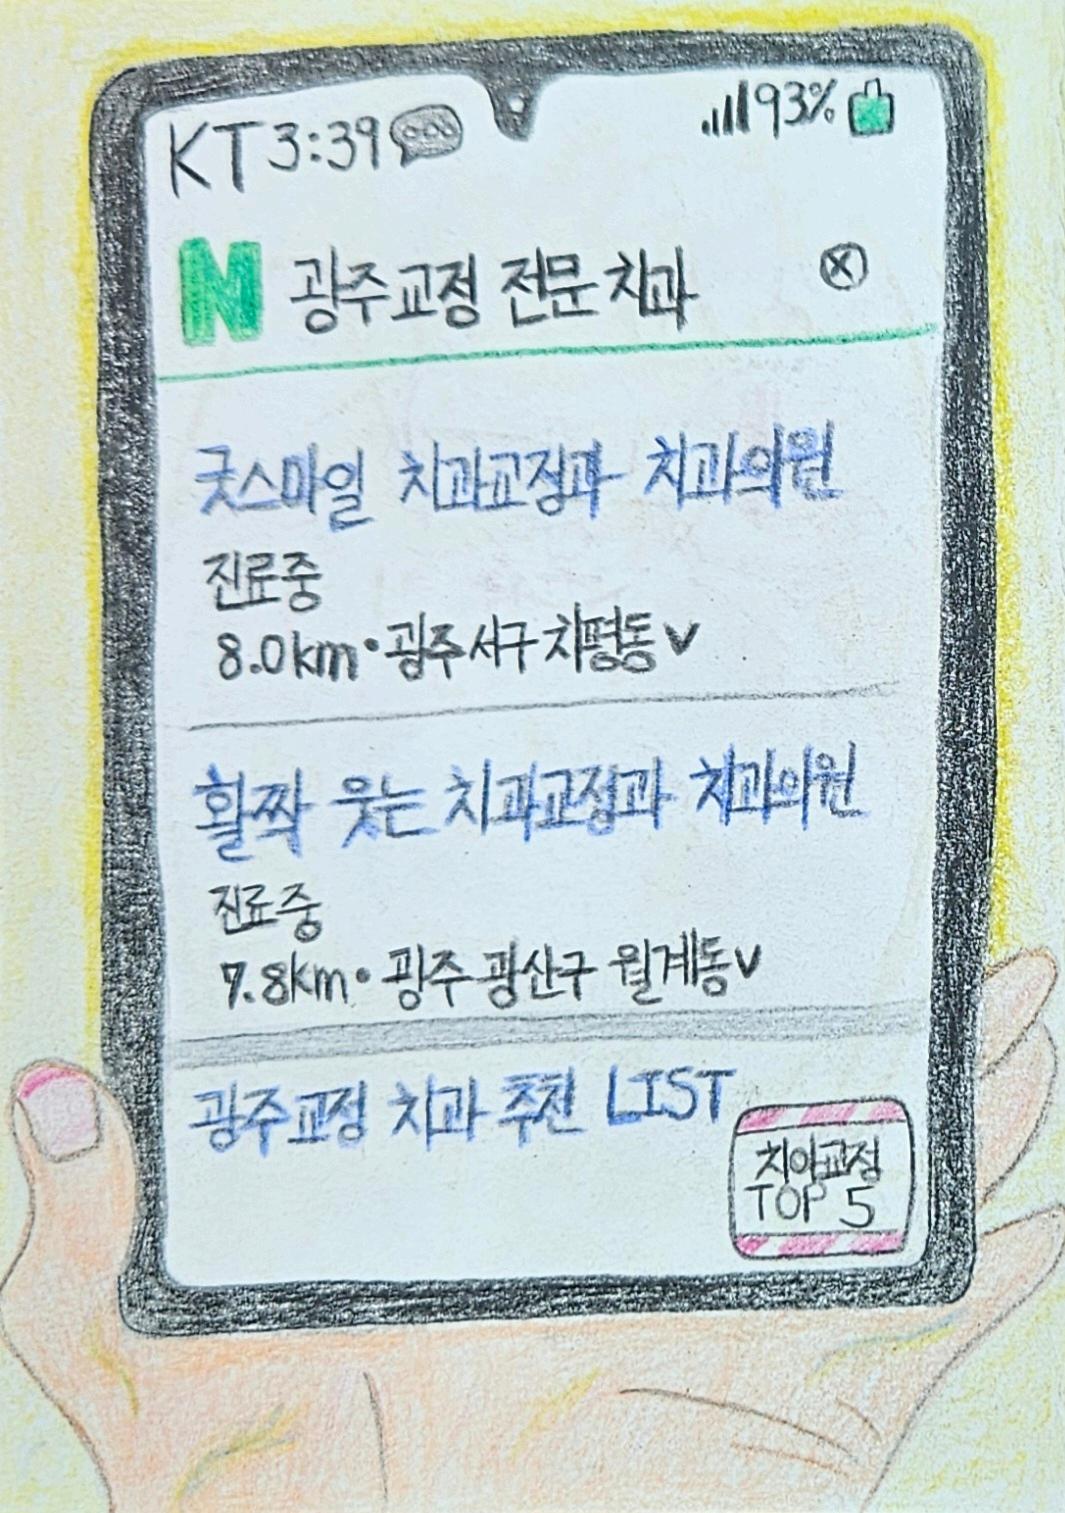 KT 3:39 93%
N 광주교정 전문 치과 ⓧ
굿스마일 치과교정과 치과의원
진료중
8.0km·광주 서구 치평동∨
활짝 웃는 치과교정과 치과의원
진료중
7.8km·광주 광산구 월계동∨
광주교정 치과 추천 LIST
치아교정
TOP 5